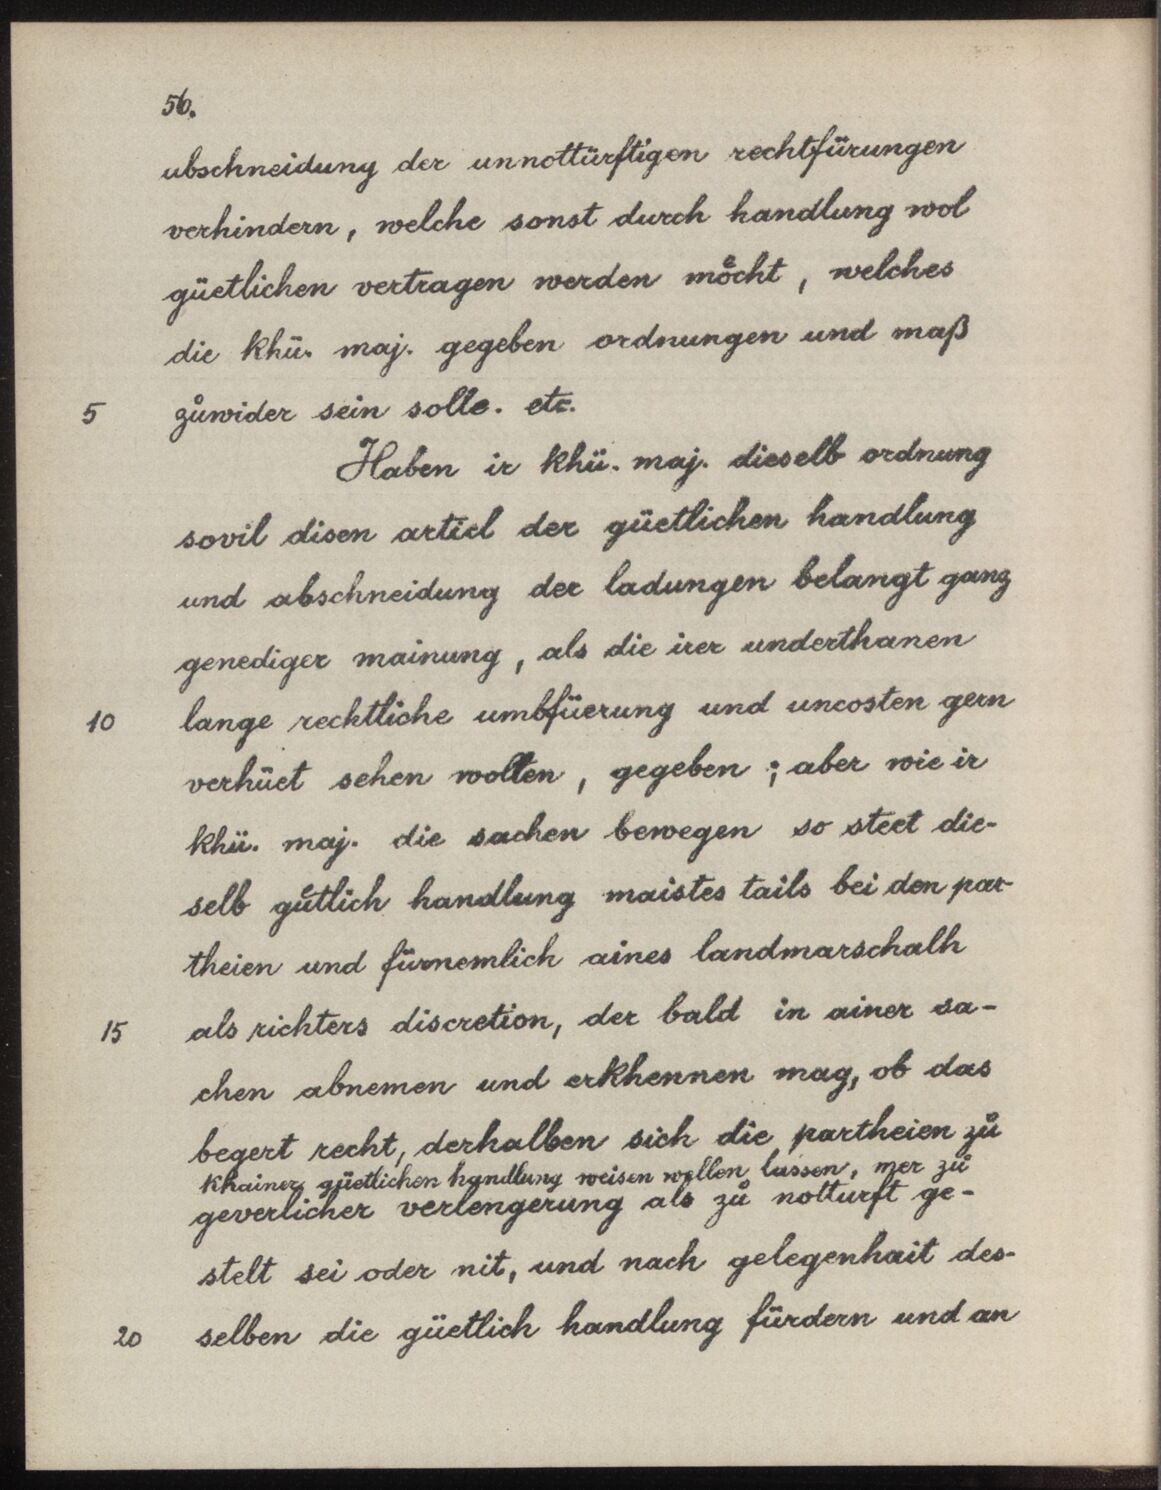 56.
abschneidung der unnottürftigen rechtfürungen
verhindern, welche sonst durch handlung wol
güetlichen vertragen werden moͤcht, welches
die khü. maj. gegeben ordnungen und maß
5 zůwider sein solle. etc.
Haben ir khü. maj. dieselb ordnung
sovil disen articl der güetlichen handlung
und abschneidung der ladungen belangt ganz
genediger mainung, als die irer underthanen
10 lange rechtliche umbfüerung und uncosten gern
verhüet sehen wolten, gegeben; aber wie ir
khü. maj. die sachen bewegen so steet die-
selb guͤtlich handlung maistes tails bei den par-
theien und fürnemlich aines landmarschalh
15 als richters discretion, der bald in ainer sa-
chen abnemen und erkhennen mag, ob das
begert recht, derhalben sich die partheien zů
khainer güetlichen handlung weisen wollen lassen, mer zů
geverlicher verlengerung als zů notturft ge-
stelt sei oder nit, und nach gelegenhait des-
20 selben die güetlich handlung fürdern und an